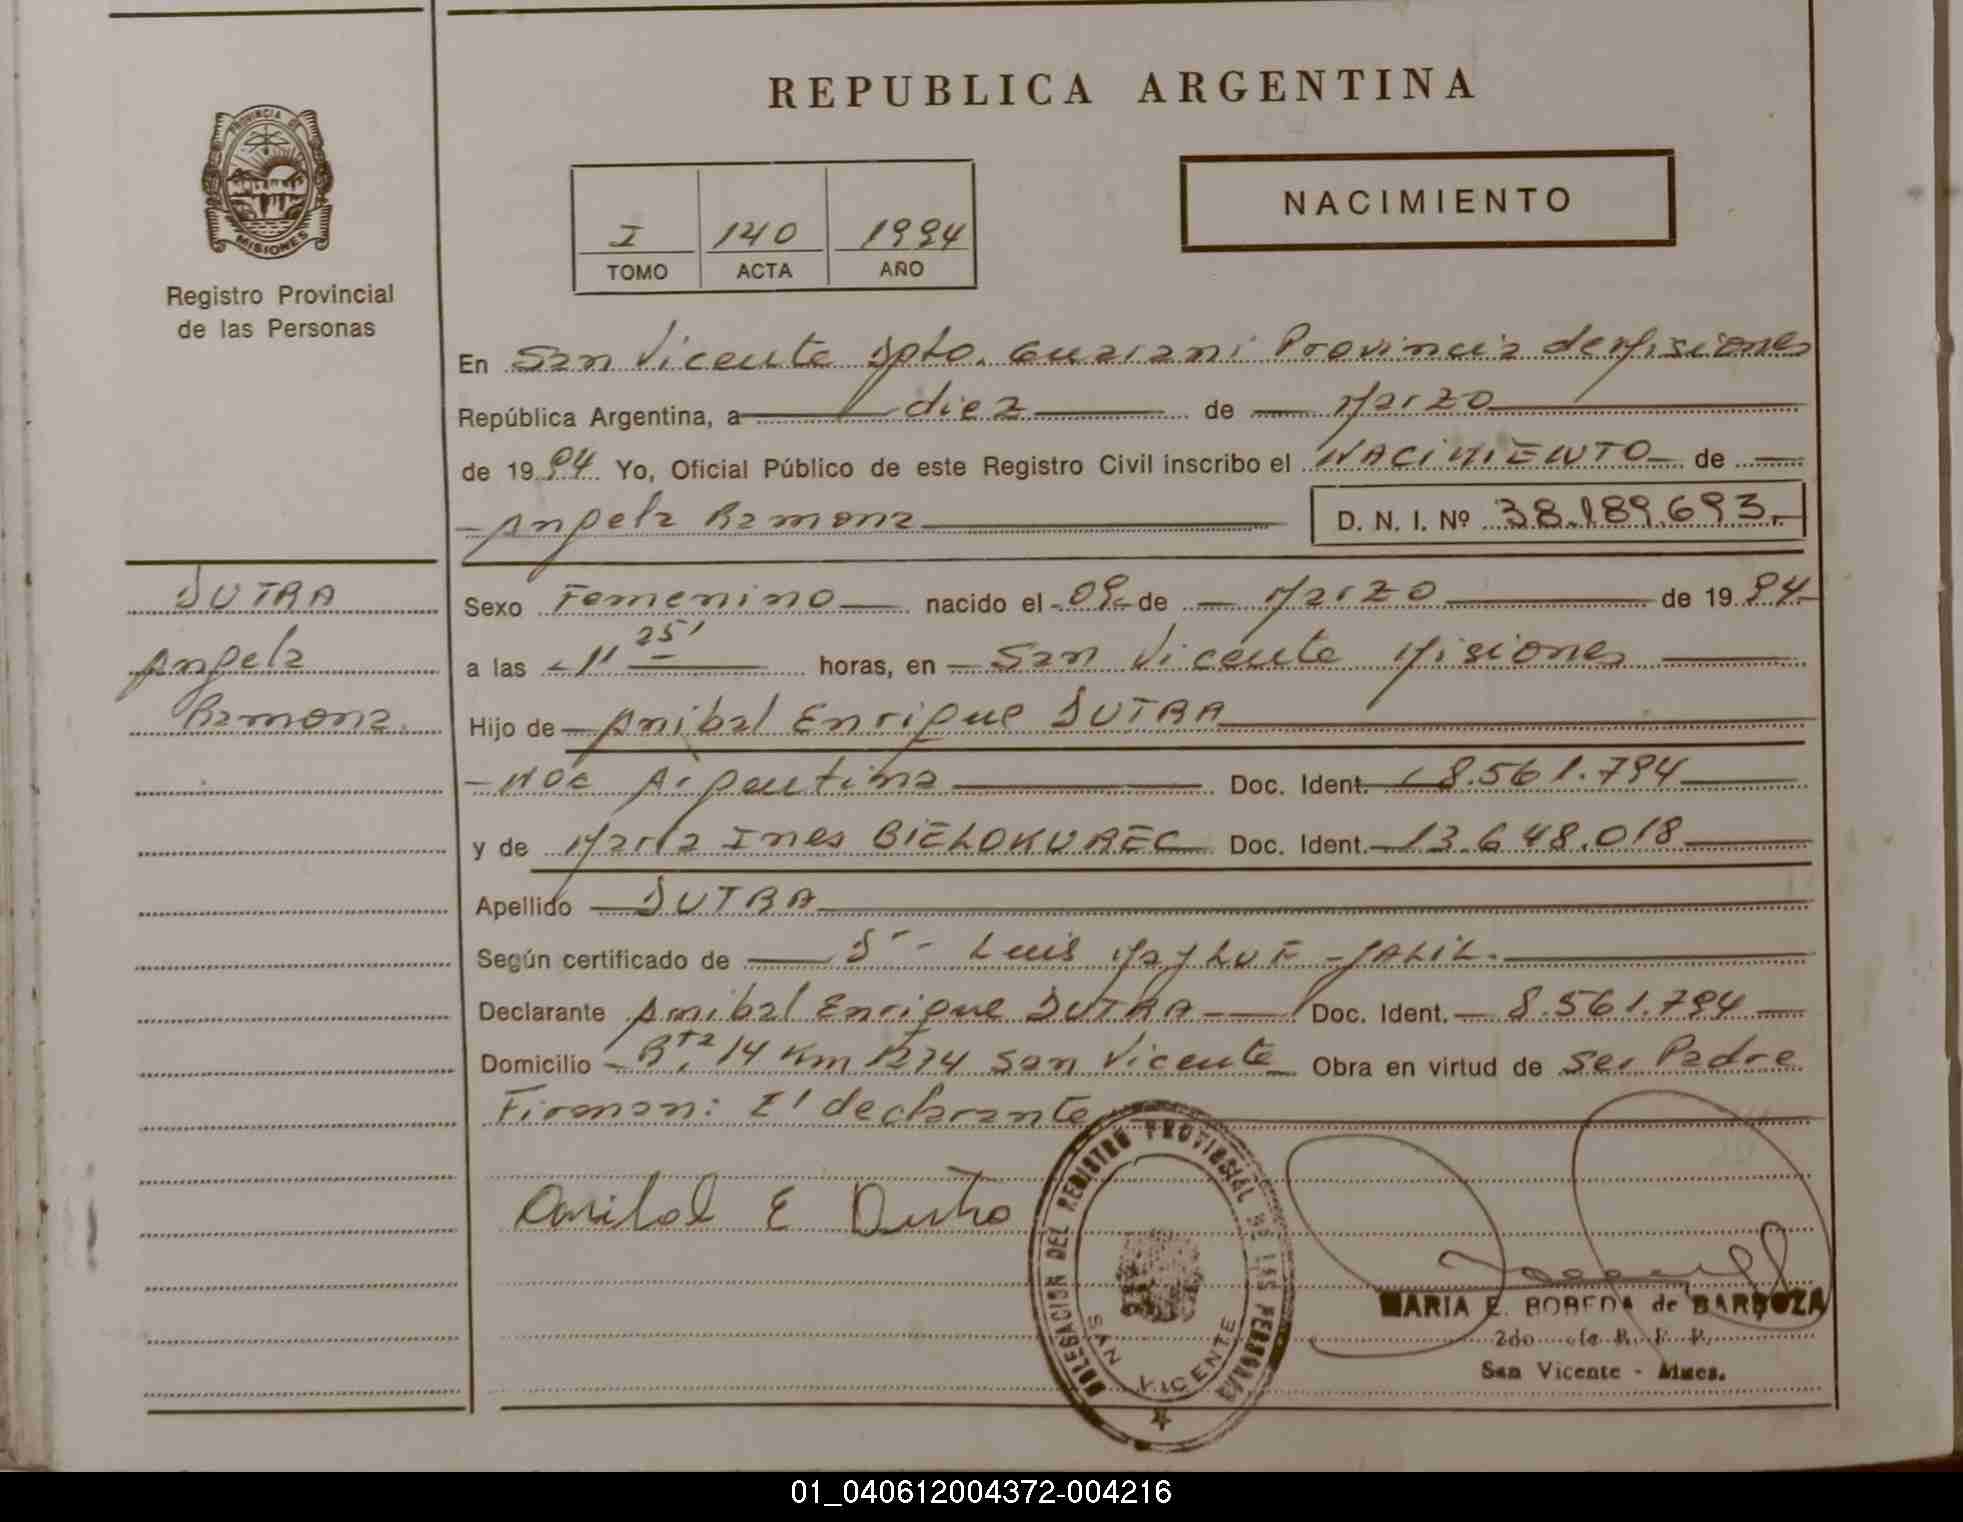 REPUBLICA ARGENTINA
PROVINCIA DE
MISIONES
Registro Provincial
de las Personas
I 140 1994
TOMO ACTA AÑO
NACIMIENTO
En San Vicente Dpto. Guarani Provincia de Misiones
República Argentina, a diez de Marzo
de 1994 Yo, Oficial Público de este Registro Civil inscribo el NACIMIENTO de
Angela Ramona D. N. I. Nº 38.189.693.-
DUTRA
Angela
Ramona.
Sexo Femenino nacido el 09 de Marzo de 1994
a las 11 25' horas, en San Vicente Misiones
Hijo de Anibal Enrique DUTRA
Argentina Doc. Ident. 8.561.794
y de Maria Ines BIELOKUREC Doc. Ident. 13.648.018
Apellido DUTRA
Según certificado de Luis JALIL.
Declarante Anibal Enrique DUTRA Doc. Ident. 8.561.794
Domicilio Rta 14 Km 1274 San Vicente Obra en virtud de ser Padre
Firman: El declarante
Anibal E Dutra
DELEGACION DEL REGISTRO PROVINCIAL DE LAS PERSONAS
SAN VICENTE
MARIA E. BOBEDA de BARBOZA
2do
San Vicente - Mnes.
01_040612004372-004216